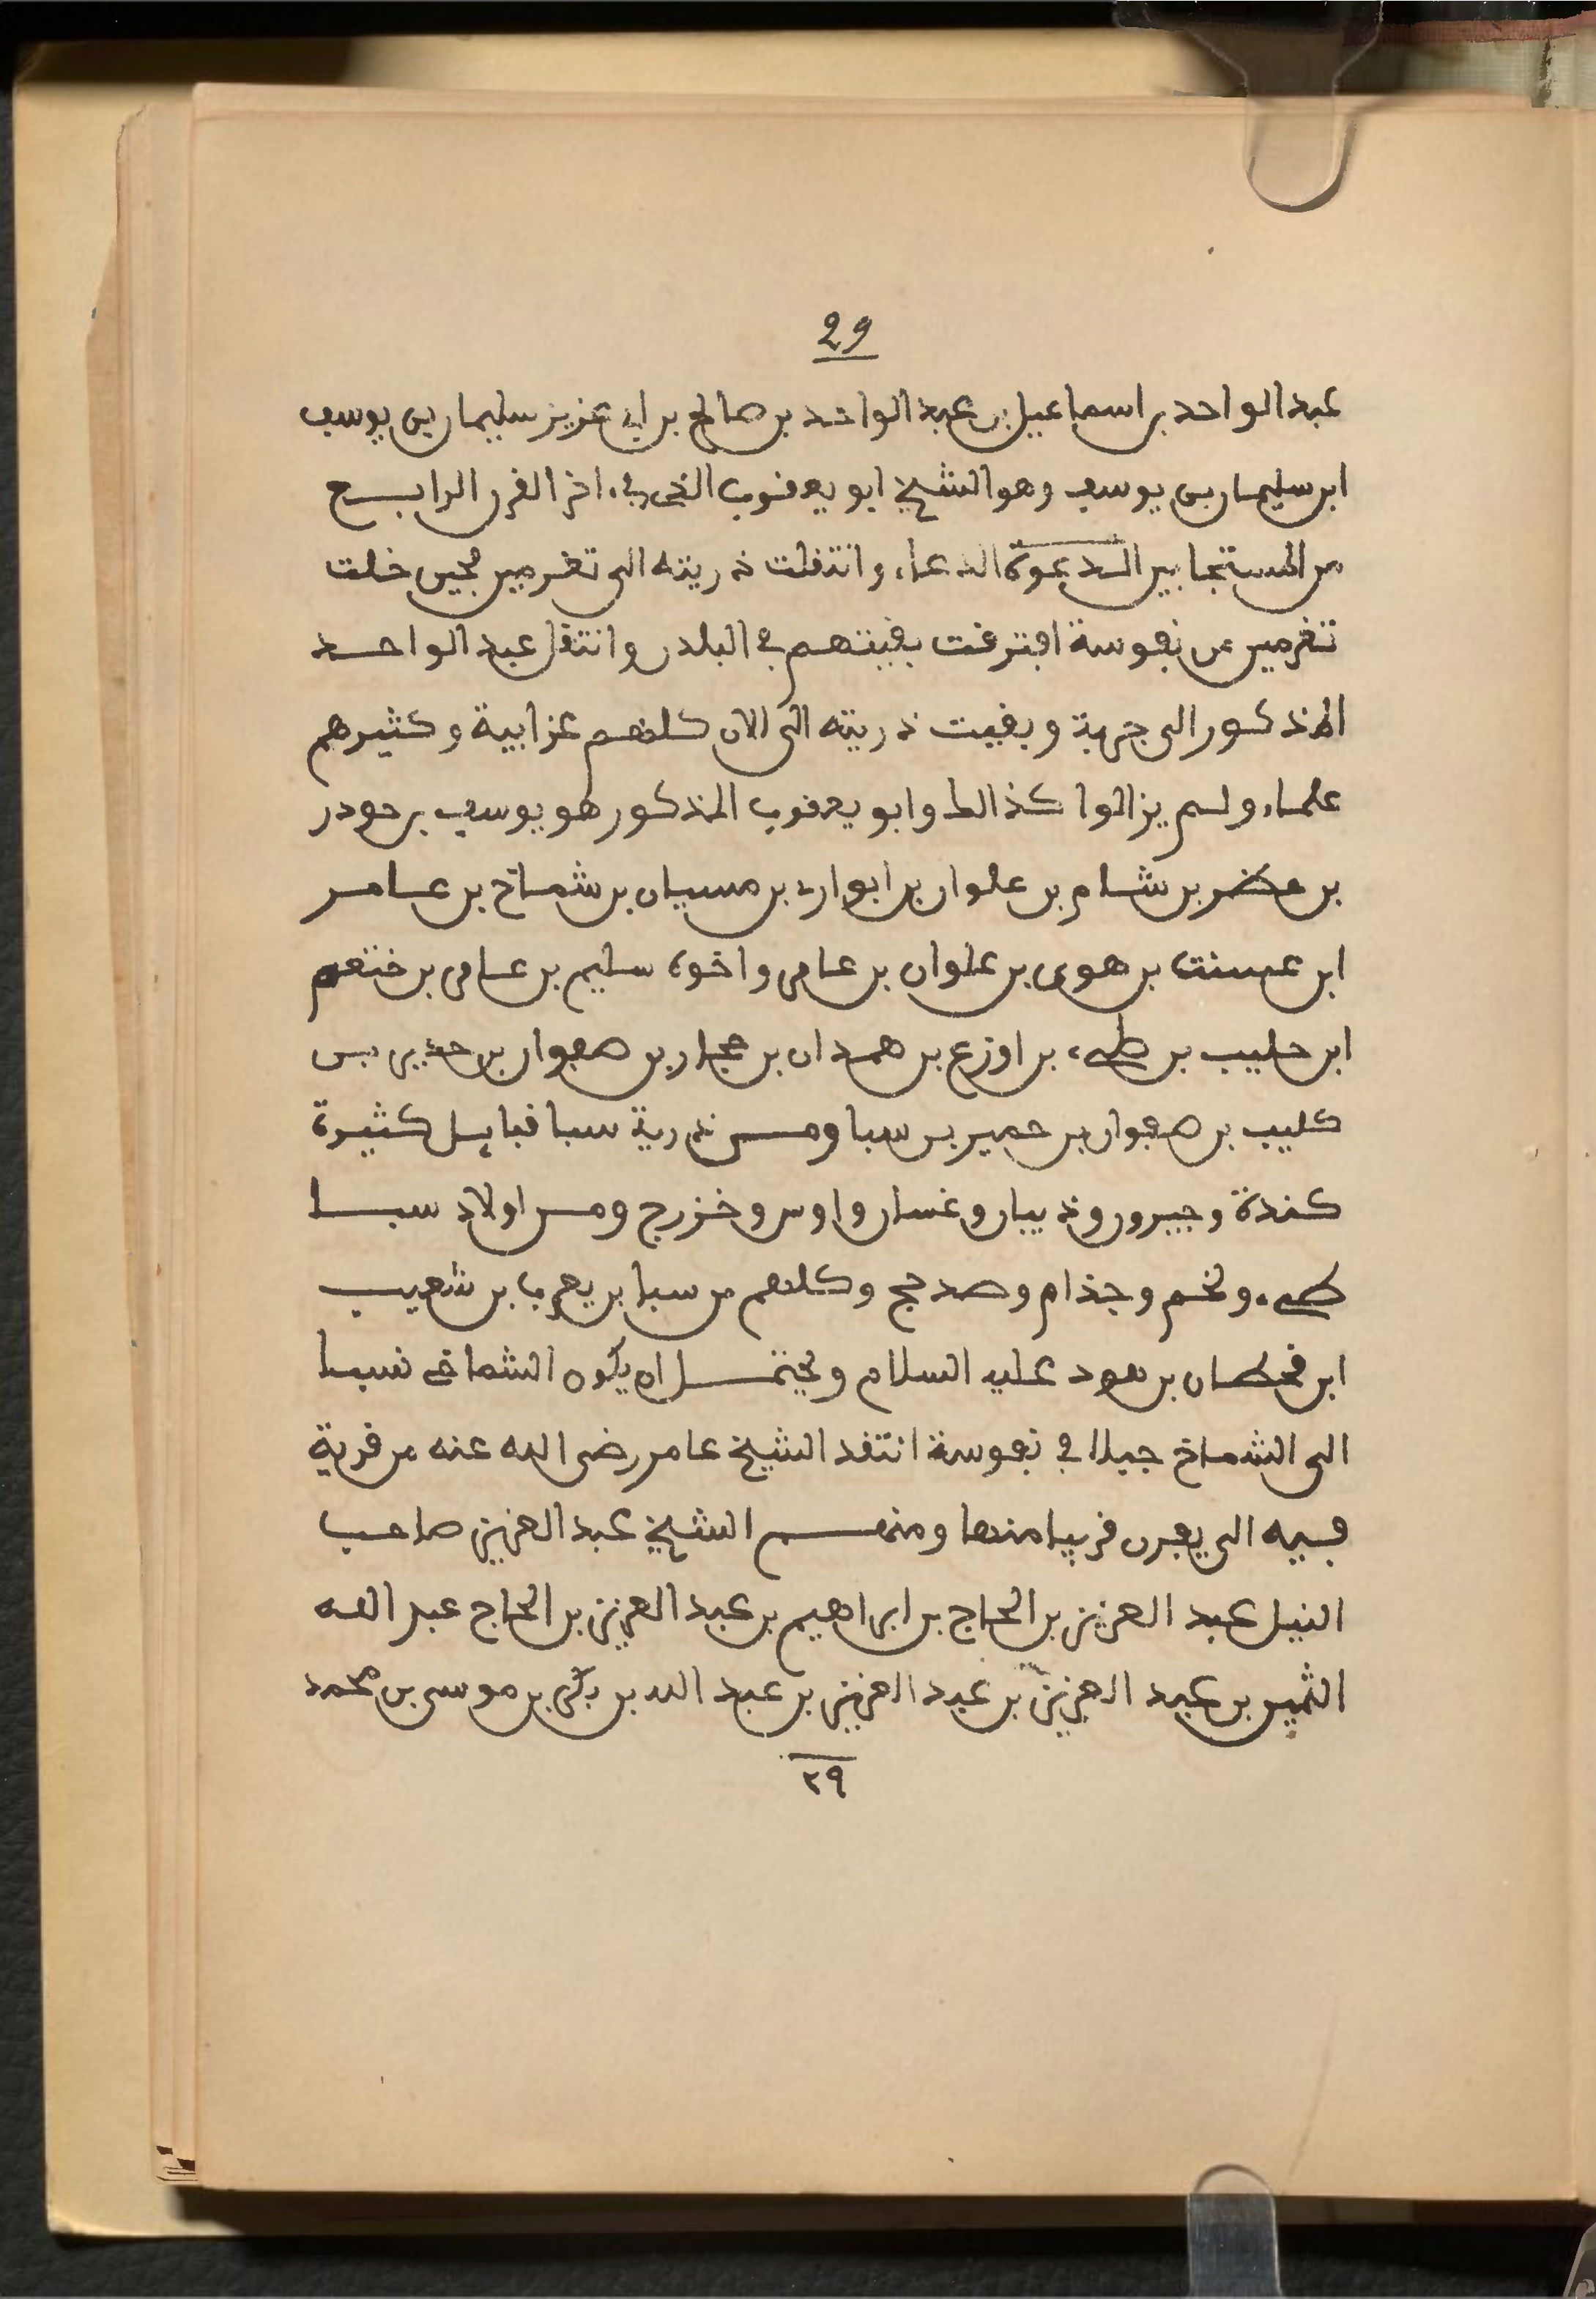 29
عبد الواحد بن اسماعيل بن عبد الواحد بن صالح بن ابي عزيز سليمان بن يوسف
ابن سليمان بن يوسف وهو الشيخ ابو يعقوب الذي في اخر القرن الرابع
من المستجابين الدعوة الدعاء وانتقلت ذريته الى تغرمين فحين خلت
تغرمين من نفوسة افترقت بقيتهم في البلدن وانتقل عبد الواحد
المذكور الى جربة وبقيت ذريته الى الان كلهم عزابية وكثيرهم
علماء ولم يزالوا كذالك وابو يعقوب المذكور هو يوسف بن حودر
بن عضر بن شام بن علوان بن ابوان بن مسيان بن شماخ بن عامر
ابن عسنت بن هوى بن علوان بن عامر واخوه سليم بن عامر بن ختعم
ابن حليب بن طيء بن اوزع بن همدان بن حجار بن صفوان بن حذير بن
كليب بن صفوان بن حمير بن سبا ومن ذرية سبا قبايل كثيرة
كندة وجبرور وذيبان وغسان واوس وخزرج ومن اولاد سبا
طيء ولخم وجذام ومدحج وكلهم من سبا بن يعرب بن شعيب
ابن قحطان بن هود عليه السلام ويحتمل ان يكون الشماخي نسبا
الى الشماخ جبلا في نفوسة انتقد الشيخ عامر رضى الله عنه من قرية
فيه الى يفرن قريبا منها ومنهم الشيخ عبد العزيز صاحب
النيل عبد العزيز بن الحاج بن ابراهيم بن عبد العزيز بن الحاج عبد الله
الثمين بن عبد العزيز بن عبد العزيز بن عبد الله بن بكر بن موسى بن محمد
٢٩